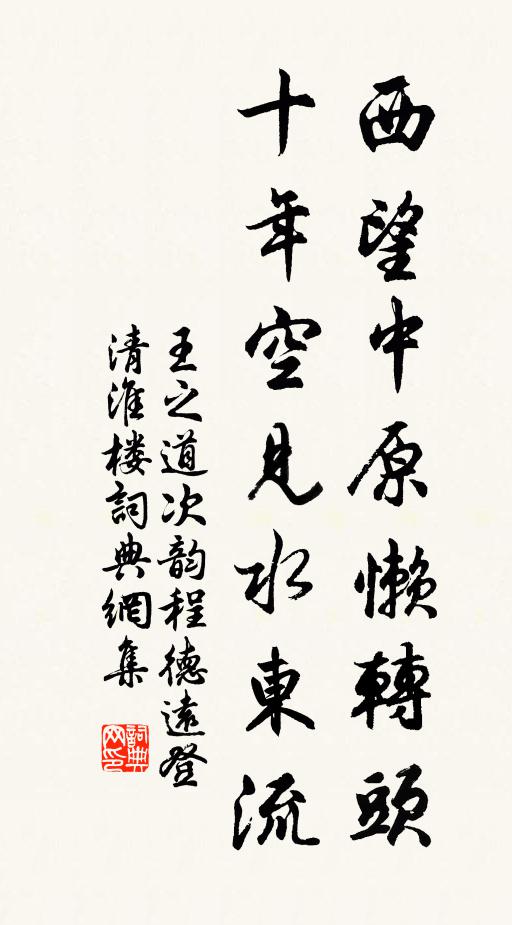 西望中原懶轉頭
十年空見水東流
王之道次韵程德遠登
清淮楼詞典網集
詞典网印